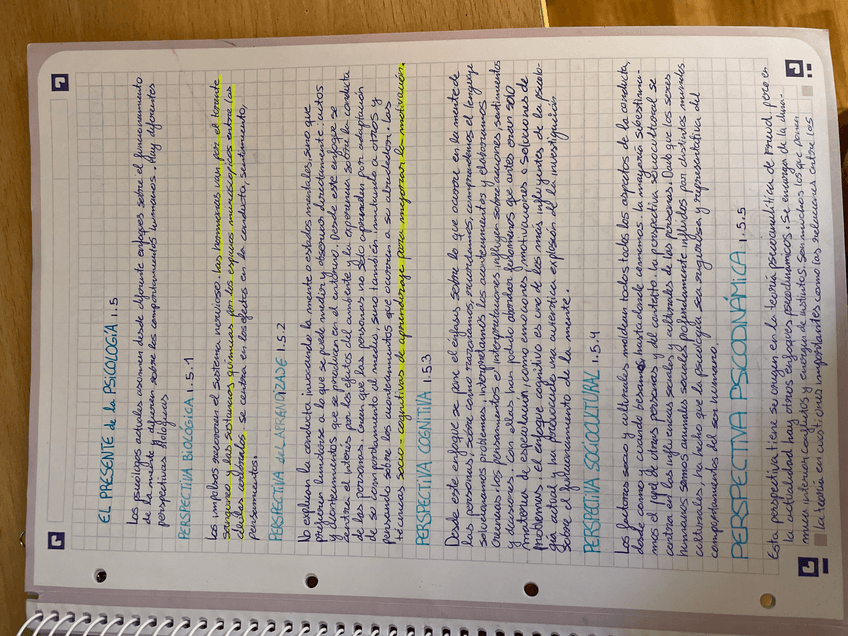 EL PRESENTE de la PSICOLOGÍA 1.5
Los psicólogos actuales asumen desde diferente enfoques sobre el funcionamiento
de la mente y difieren sobre los comportamientos humanos. Hay diferentes
perspectivas Biológicas
PERSPECTIVA BIOLÓGICA 1.5.1
Los impulsos recorren el sistema nervioso. Las hormonas van por el torrente
sanguíneo y las sustancias químicas por los espacios microscópicos entre las
células cerebrales se centra en los efectos en la conducta, sentimiento,
pensamientos.
PERSPECTIVA del APRENDIZAJE 1.5.2
No explican la conducta invocando la mente o estados mentales, sino que
prefieren limitarse a lo que se puede medir y observar directamente: actos
y acontecimientos que se producen en el entorno. Desde este enfoque se
centra el interés por los efectos del ambiente y la experiencia sobre la conducta
de las personas. Creen que las personas no solo aprenden por adaptación
de su comportamiento al medio sino también imitando a otros y
pensando sobre los acontecimientos que ocurren a su alrededor. Las
técnicas socio-cognitivas de aprendizaje para mejorar la motivación.
PERSPECTIVA COGNITIVA 1.5.3
Desde este enfoque se pone el énfasis sobre lo que ocurre en la mente de
las personas, sobre como razonamos, recordamos, comprendemos el lenguaje
solucionamos problemas, interpretamos los acontecimientos y elaboramos
creencias. Los pensamientos e interpretaciones influyen sobre acciones, sentimientos
y decisiones. Con ellas han podido abordar fenómenos que antes eran solo
materia de especulación, como emociones, motivaciones o soluciones de
problemas. el enfoque cognitivo es uno de los más influyentes de la psicolo-
gía actual y ha producido una autentica explosión de la investigación
sobre el funcionamiento de la mente.
PERSPECTIVA SOCIOCULTURAL 1.5.4
Los factores socio y culturales moldean todos todos los aspectos de la conducta,
desde como y cuando besamos hasta donde comemos. la mayoría subestima-
mos el de otras personas y del contexto. La perspectiva sociocultural se
centra en las influencias sociales y culturales de las personas. Dado que los seres
humanos somos animales sociales profundamente influidos por distintos mundos
culturales, ha hecho que la psicología sea rigurosa y representativa del
comportamiento del ser humano.
PERSPECTIVA PSICODINÁMICA 1.5.5
Esta perspectiva tiene su origen en la teoría psicoanalítica de Freud, pero en
la actualidad hay otros enfoques psicodinámicos. Se encarga de la diná-
mica interior conflictos y energía de instintos. Son muchos los que ponen
la teoría en cuestiones importantes como las relaciones entre los